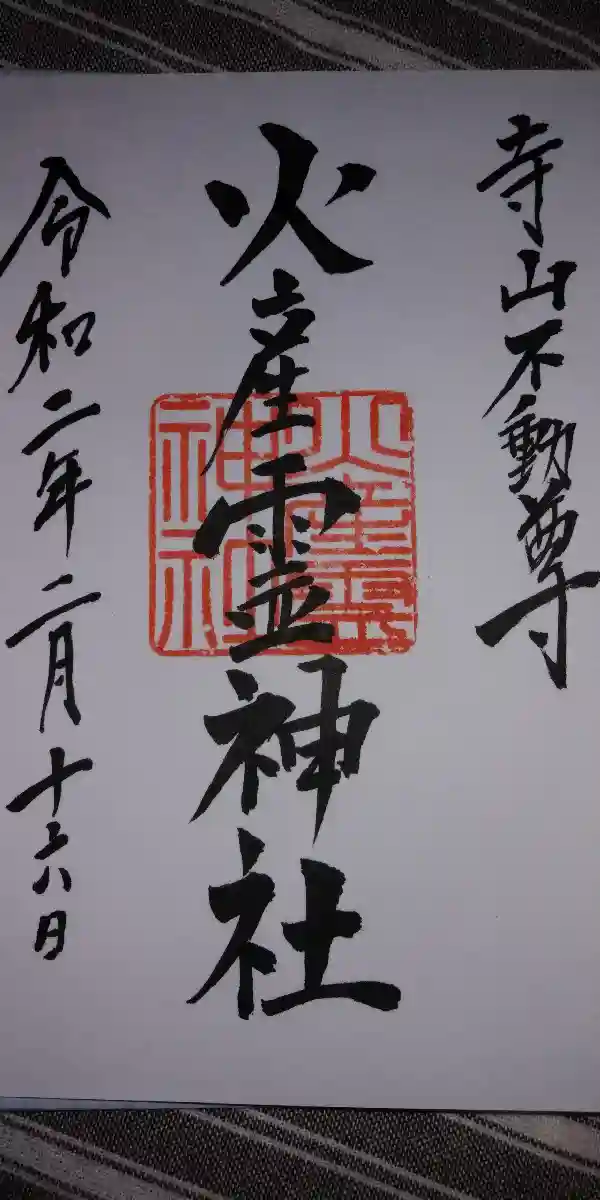 寺山不動尊
火産霊神社
火産霊神社
令和二年二月十六日